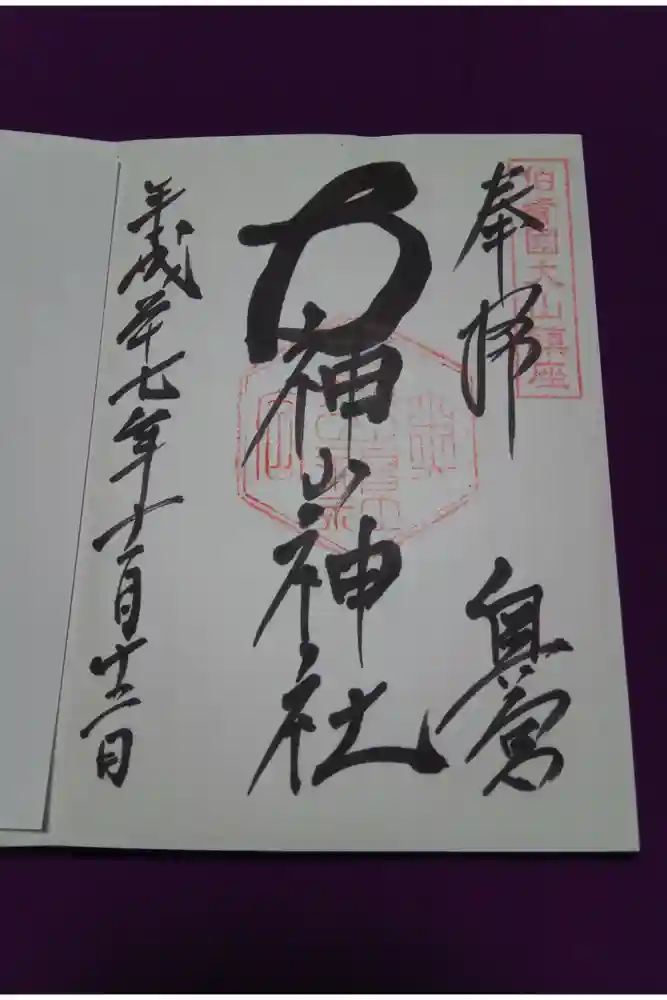 伯耆國大山鎮座
奉拝
奥宮
大神山神社
平成廿七年十一月日